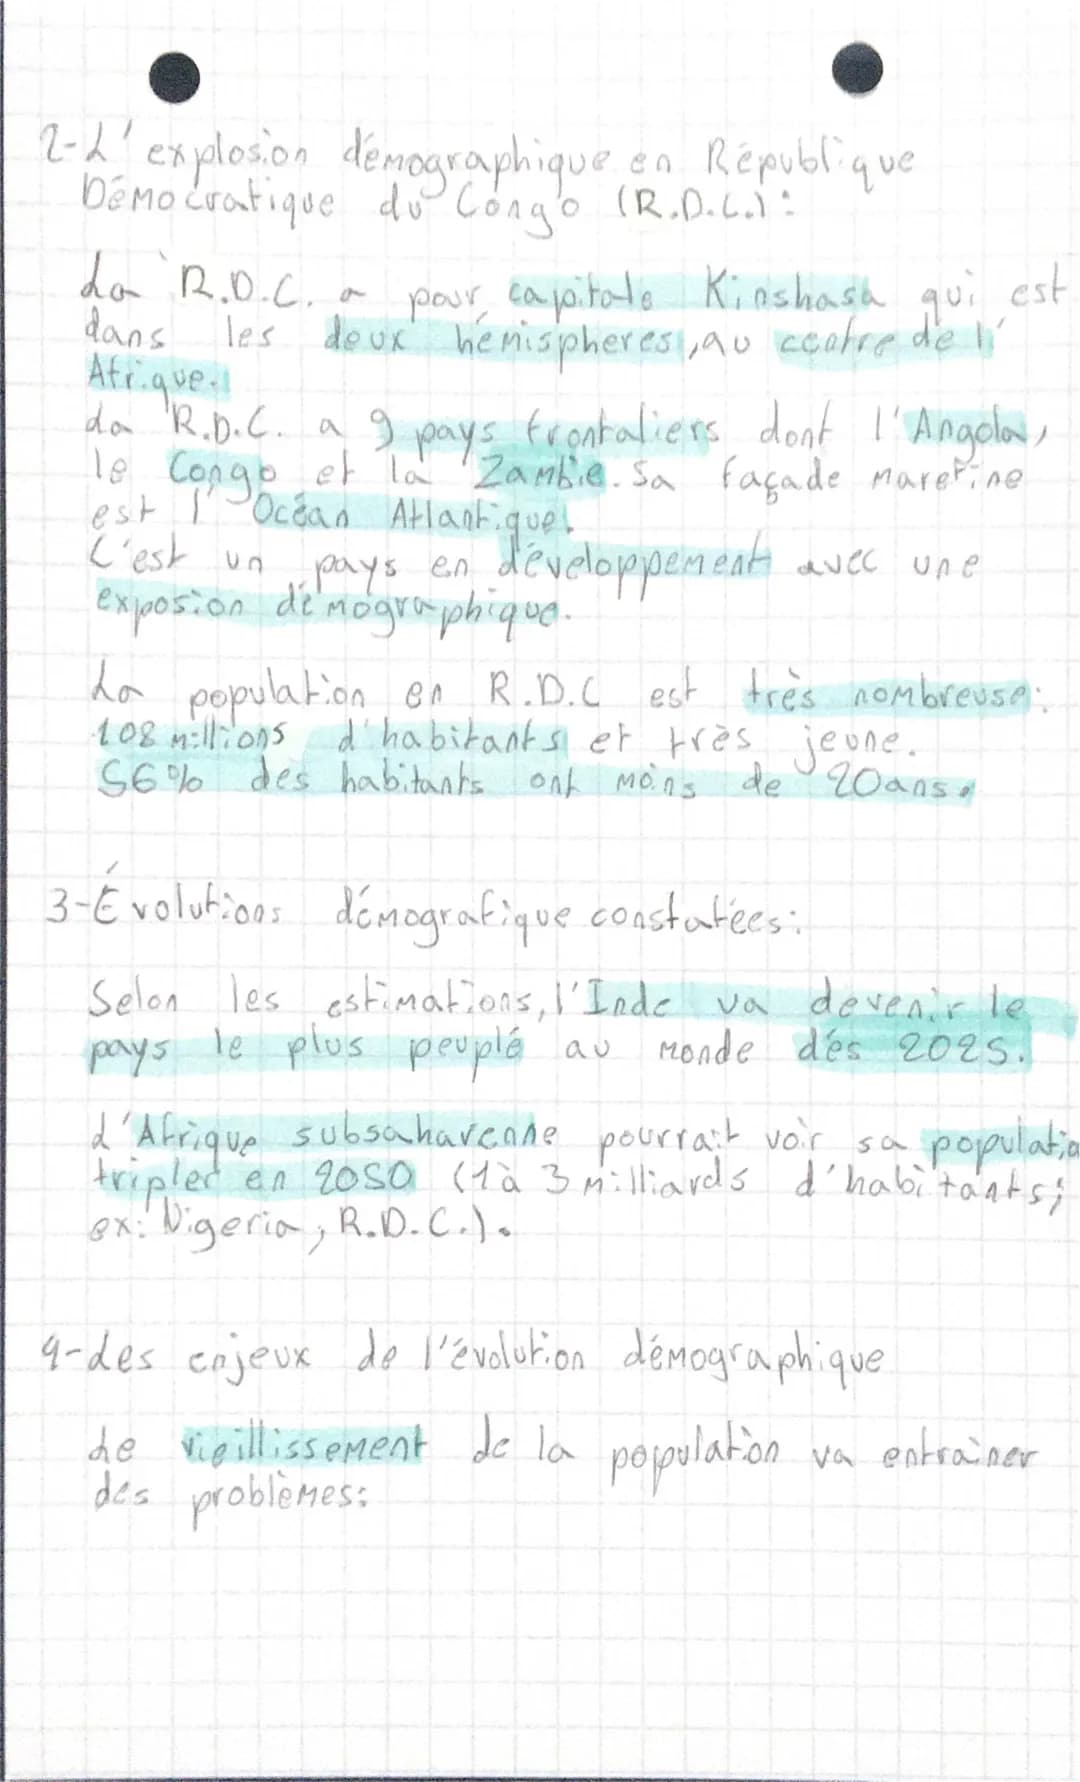 2-L'explosion démographique en République
Démocratique du Congo (R.D.C.):
La R.D.C. a pour capitale Kinshasa qui est
dans les deux hémispheres, au centre de l'
Afrique.
La R.D.C. a 9 pays frontaliers dont l'Angola,
le Congo et la Zambie. Sa façade maretine
est l'Océan Atlantique.
C'est un pays en développement avec une
exposion démographique.
La population en R.D.C est très nombreuse:
108 millions d'habitants et très jeune.
56% des habitants ont moins de 20ans.
3-Évolutions démografique constatées:
Selon les estimations, l'Inde va devenir le
pays le plus peuplé au monde dés 2025.
L'Afrique subsaharenne pourrait voir sa populatio
tripler en 2050 (1à 3 milliards d'habitants;
ex: Nigeria, R.D.C.).
4-Les enjeux de l'évolution démographique
Le vieillissement de la population va entraîner
des problèmes: